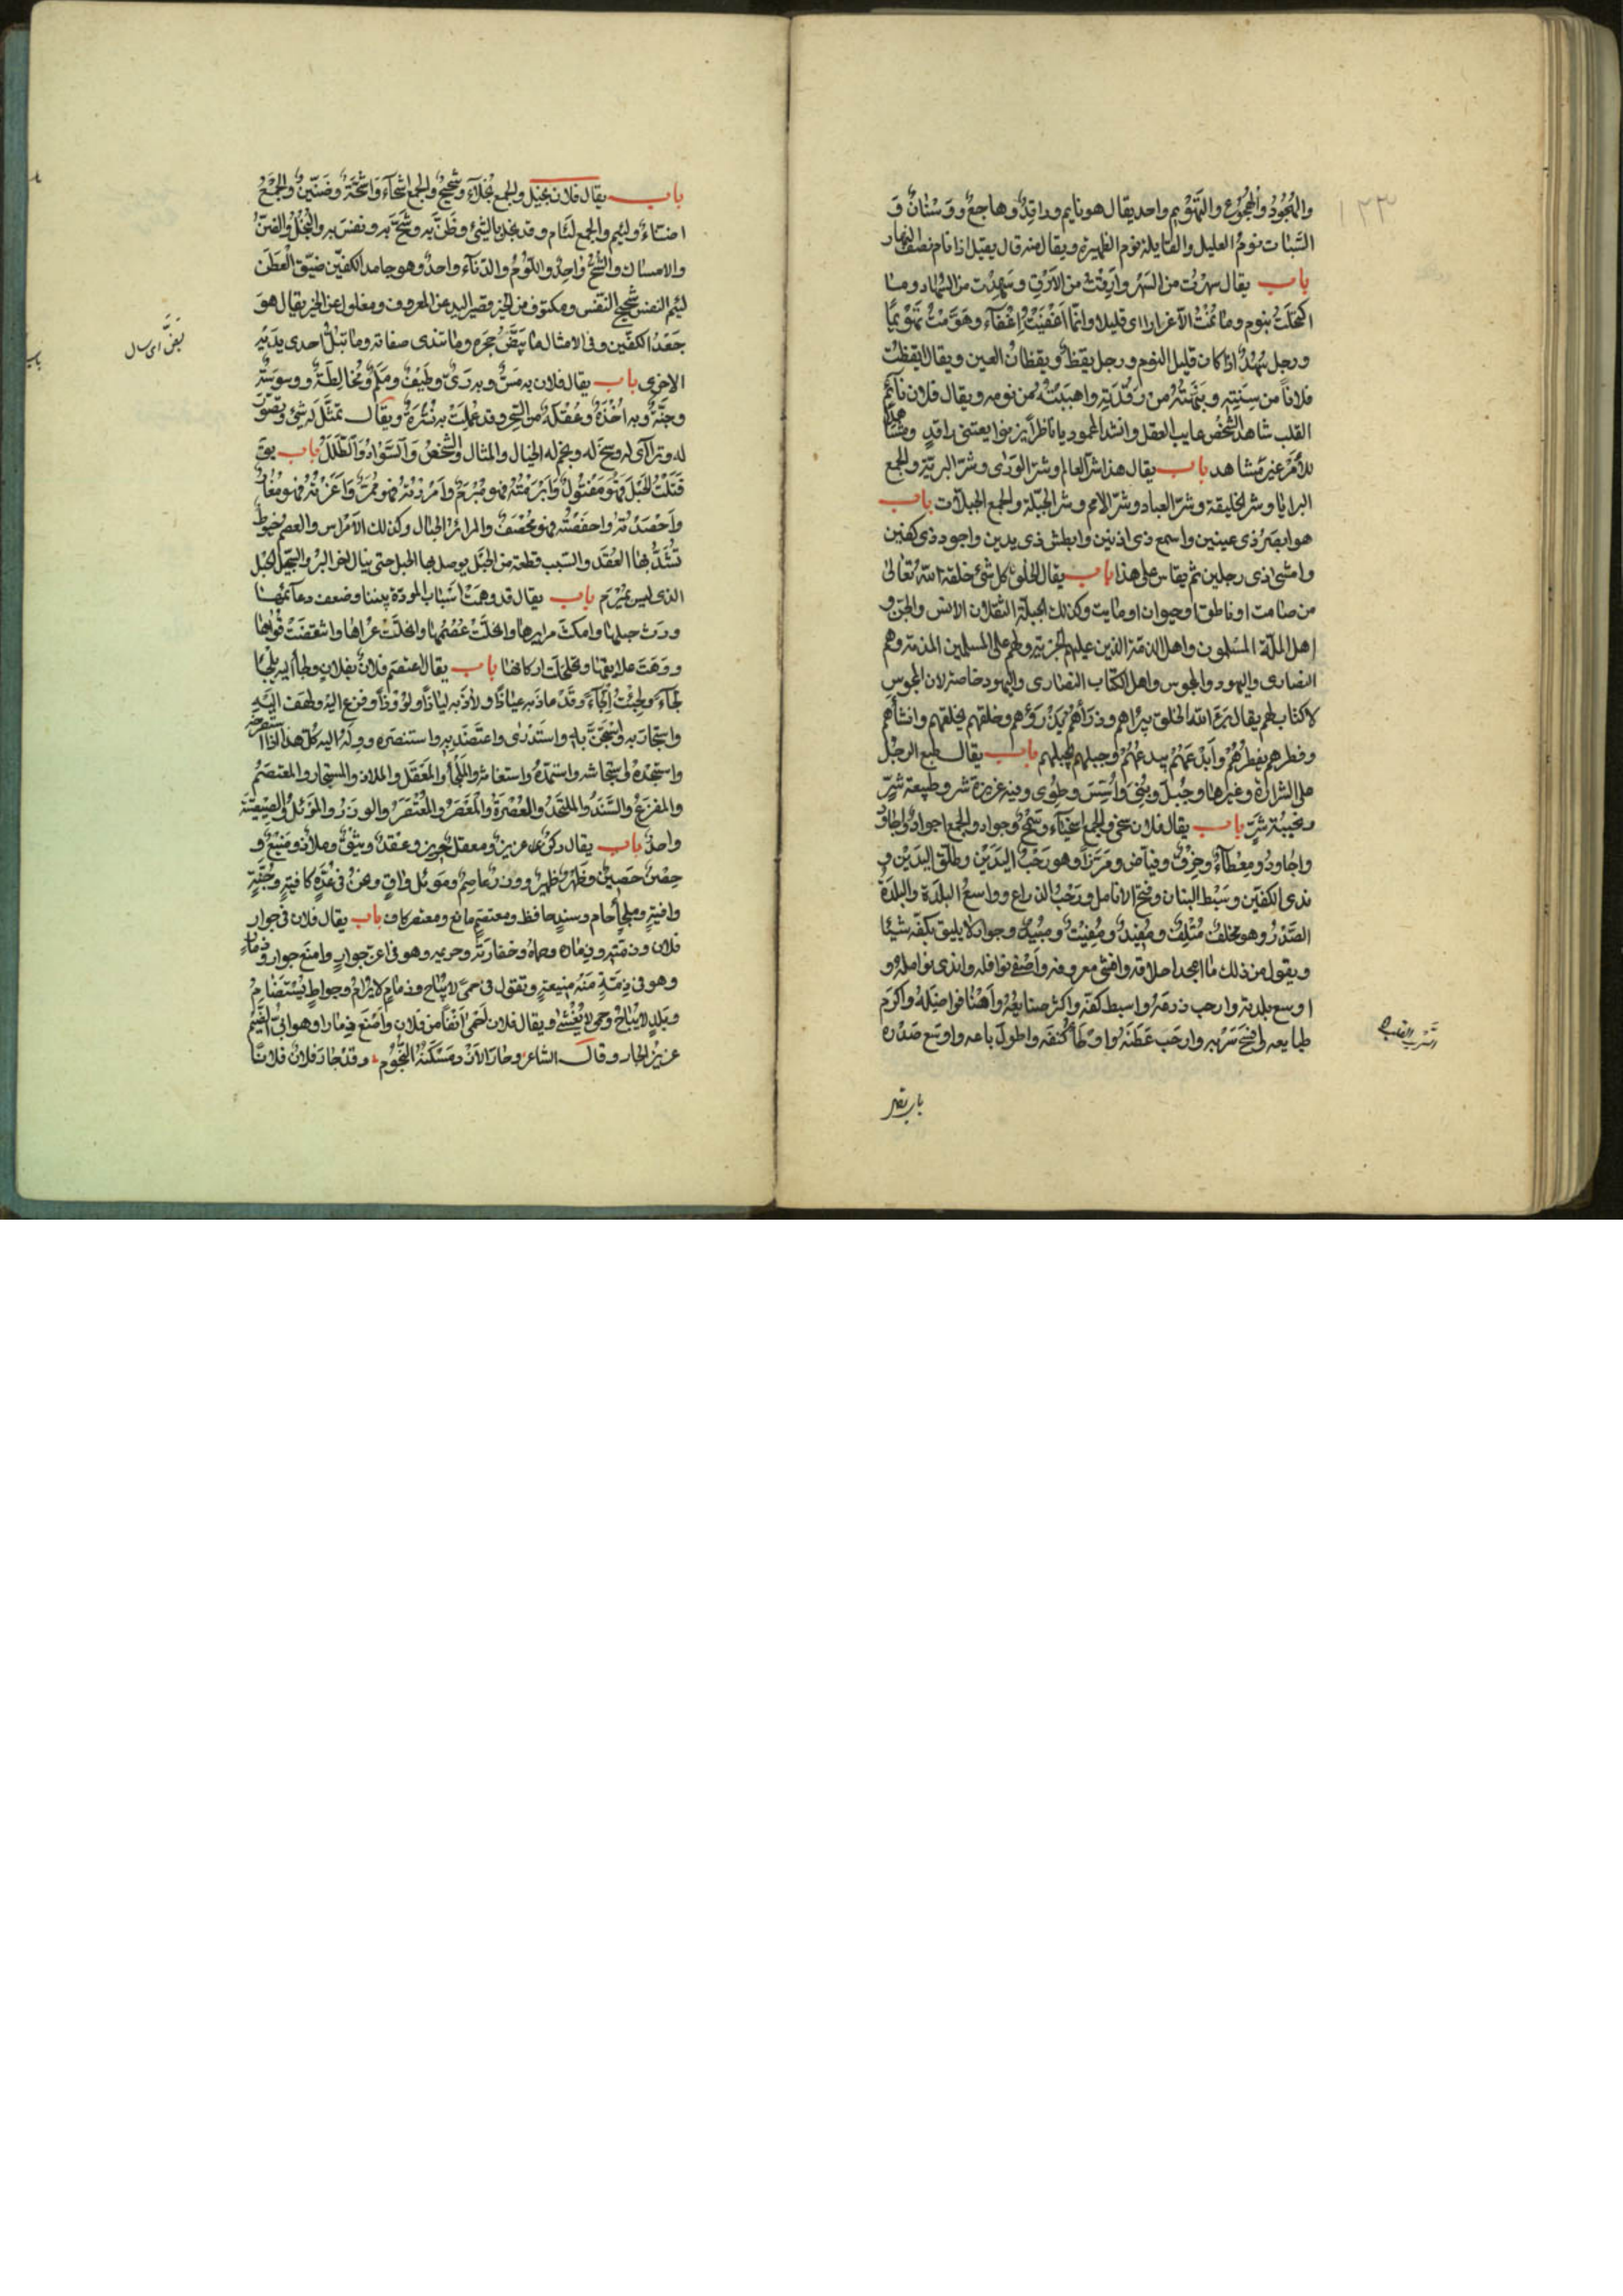 والهجود والهجوع والتهويم واحد يقال هو نايم وراقد وهاجع ووسنان و
السبات نوم العليل والقايلة نوم الظهيرة ويقال منه قال يقيل اذا نام نصف النهار
باب يقال سهرت من السهر وارقت من الارق وسهدت من السهاد وما
اكتحلت بنوم وما نمت الا غرارا اى قليلا وانما اغفيت اغفآء وهومت تهويما
ورجل سهد اذا كان قليل النوم ورجل يقظ ويقظان العين ويقال ايقظت
فلانا من سنته ونبهته من رقدته واهببته من نومه ويقال فلان نآئم
القلب شاهد الشخص غايب العقل وانشد لمحمود يا ناظرا يرنوا بعينى راقد ومشاهدا
للامر غير مشاهد باب يقال هذا شر العالم وشر الورى وشر البرية والجمع
البرايا وشر الخليقة وشر العباد وشر الامم وشر الجبلة والجمع الجبلات باب
هو ابصر ذى عينين واسمع ذى اذنين وابطش ذى يدين واجود ذى كفين
وامشى ذى رجلين ثم يقاس على هذا باب يقال الخلق كل شئ خلقه الله تعالى
من صامت او ناطق او حيوان او مايت وكذلك الجبلة الثقلان الانس والجن و
اهل الملة المسلمون واهل الذمة الذين عليهم الجزية ولهم على المسلمين الذمة وهم
النصارى واليهود والمجوس واهل الكتاب النصارى واليهود خاصة لان المجوس
لا كتاب لهم يقال برء الله الخلق يبراهم وذرأهم يذرؤهم وخلقهم يخلقهم وانشأهم
وفطرهم يفطرهم وابدعهم يبدعهم وجبلهم يجبلهم باب يقال طبع الرجل
على الشرارة وغيرها وجبل وبنى واسس وطوى وفيه غريزة شر وطبيعة شر
ونحيتة شر باب يقال فلان سخى والجمع اسخيآء وسمح وجواد والجمع اجواد واجاود
واجاود ومعطآء وخرق وفياض وهو رحب اليدين وطلق اليدين و
ندى الكفين وسبط البنان وفتح الانامل ورحب الذراع وواسع البلدة والبلدة
الصدر وهو مخلف متلف ومفيد ومفيت ومبيد وجواد لا يليق بكفه شيئا
ويقول من ذلك ما امجد اخلاقه وافشى معروفه واضفى نوافله واندى انامله و
اوسع بلدته وارحب ذرعه وابسط كفه واكثر صنايعه واهنا فواضله واكرم
طبايعه وافسح سربه وارحب عطنه واوطأ كنفه واطول باعه واوسع صدره
باب يقال
١٢٣
السرب القلب
باب يقال فلان بخيل والجمع بخلآء وشحيح والجمع اشحآء واشحة وضنين والجمع
اضنآء ولئيم والجمع لئام وقد بخل بالشئ وضن به وشح به ونفس به والبخل والضن
والامساك والشح واحد واللؤم والدنآءة واحد وهو جامد الكفين ضيق العطن
لئيم النفس شحيح النفس ومكتوف من الخير وقصير اليد عن المعروف ومغلول عن الخير يقال هو
جعد الكفين وفى الامثال ما يبض حجره وما تندى صفاته وما تبل احدى يديه
الاخرى باب يقال فلان به مس وبه رئى وطيف ولمم ومخالطة ووسوسة
وجنة وبه اخذة وعقلة من السحر وقد عملت به نشرة ويقال تمثل له شئ وتصور
له وترآاى له وسنح له ونجم له الخيال والمثال والشخص والسواد والطلل باب يق
فتلت الحبل فهو مفتول وابرمته فهو مبرم وامررته فهو ممر واغرته فهو مغار
واحصدته واحصفته فهو محصف والمرائر الحبال وكذلك الامراس والعصم خيوط
تشد بها العقد والسبب قطعة من الحبل يوصل بها الحبل حتى ينال اخر البئر والسحيل الحبل
الذى ليس بمبرم باب يقال قد وهت اسباب المودة بيننا وضعف دعآئمها
ورث حبلها وانحلت عصمها وانحلت عراها وانتقضت قواها
ووهت علايقها وتخلخلت اركانها باب يقال اعتصم فلان بفلان ولجأ اليه يلجأ
لجآء ولجئت الجآء وقد عاذ به عياذا ولاذ به لياذا ولوذا وفزع اليه ولهف اليه
واستجار به والتجى به واستذرى واعتضد به واستنصره ووله اليه كل هذا اذا استصرخه
واستنجده واستجاشه واستمده واستغاثه والملجأ والمعقل والملاذ والمستجار والمعتصم
والمفزع والسند والملتحد والعصرة والمعصر والمعتصر والوزر والموئل والصيصية
واحد باب يقال ركن عزيز ومعقل حريز ومنيع و
حصن حصين وظهر ظهير ووزر عاصم وموئل واق وهن فى عدة كافية وجنة
واقية وملجأ حام وسند حافظ ومعتصم مانع ومعتصر كاف باب يقال فلان فى جوار
فلان وذمته وذماره وحماه وخفارته وحريمه وهو فى اعز جوار وامنع جوار وذمار
وهو فى ذمة منيعة وتقول فى حمى لا يباح وذمام لا يرام وجوار لا يستضام
وبلد لا يباح وحمى لا يغشى ويقال فلان احمى انفا من فلان وامنع ذمارا وهو ابى الضيم
عزيز الجار وقال الشاعر وجار الازد مسكنه النجوم وقد جار فلان فلانا
بض اى سال